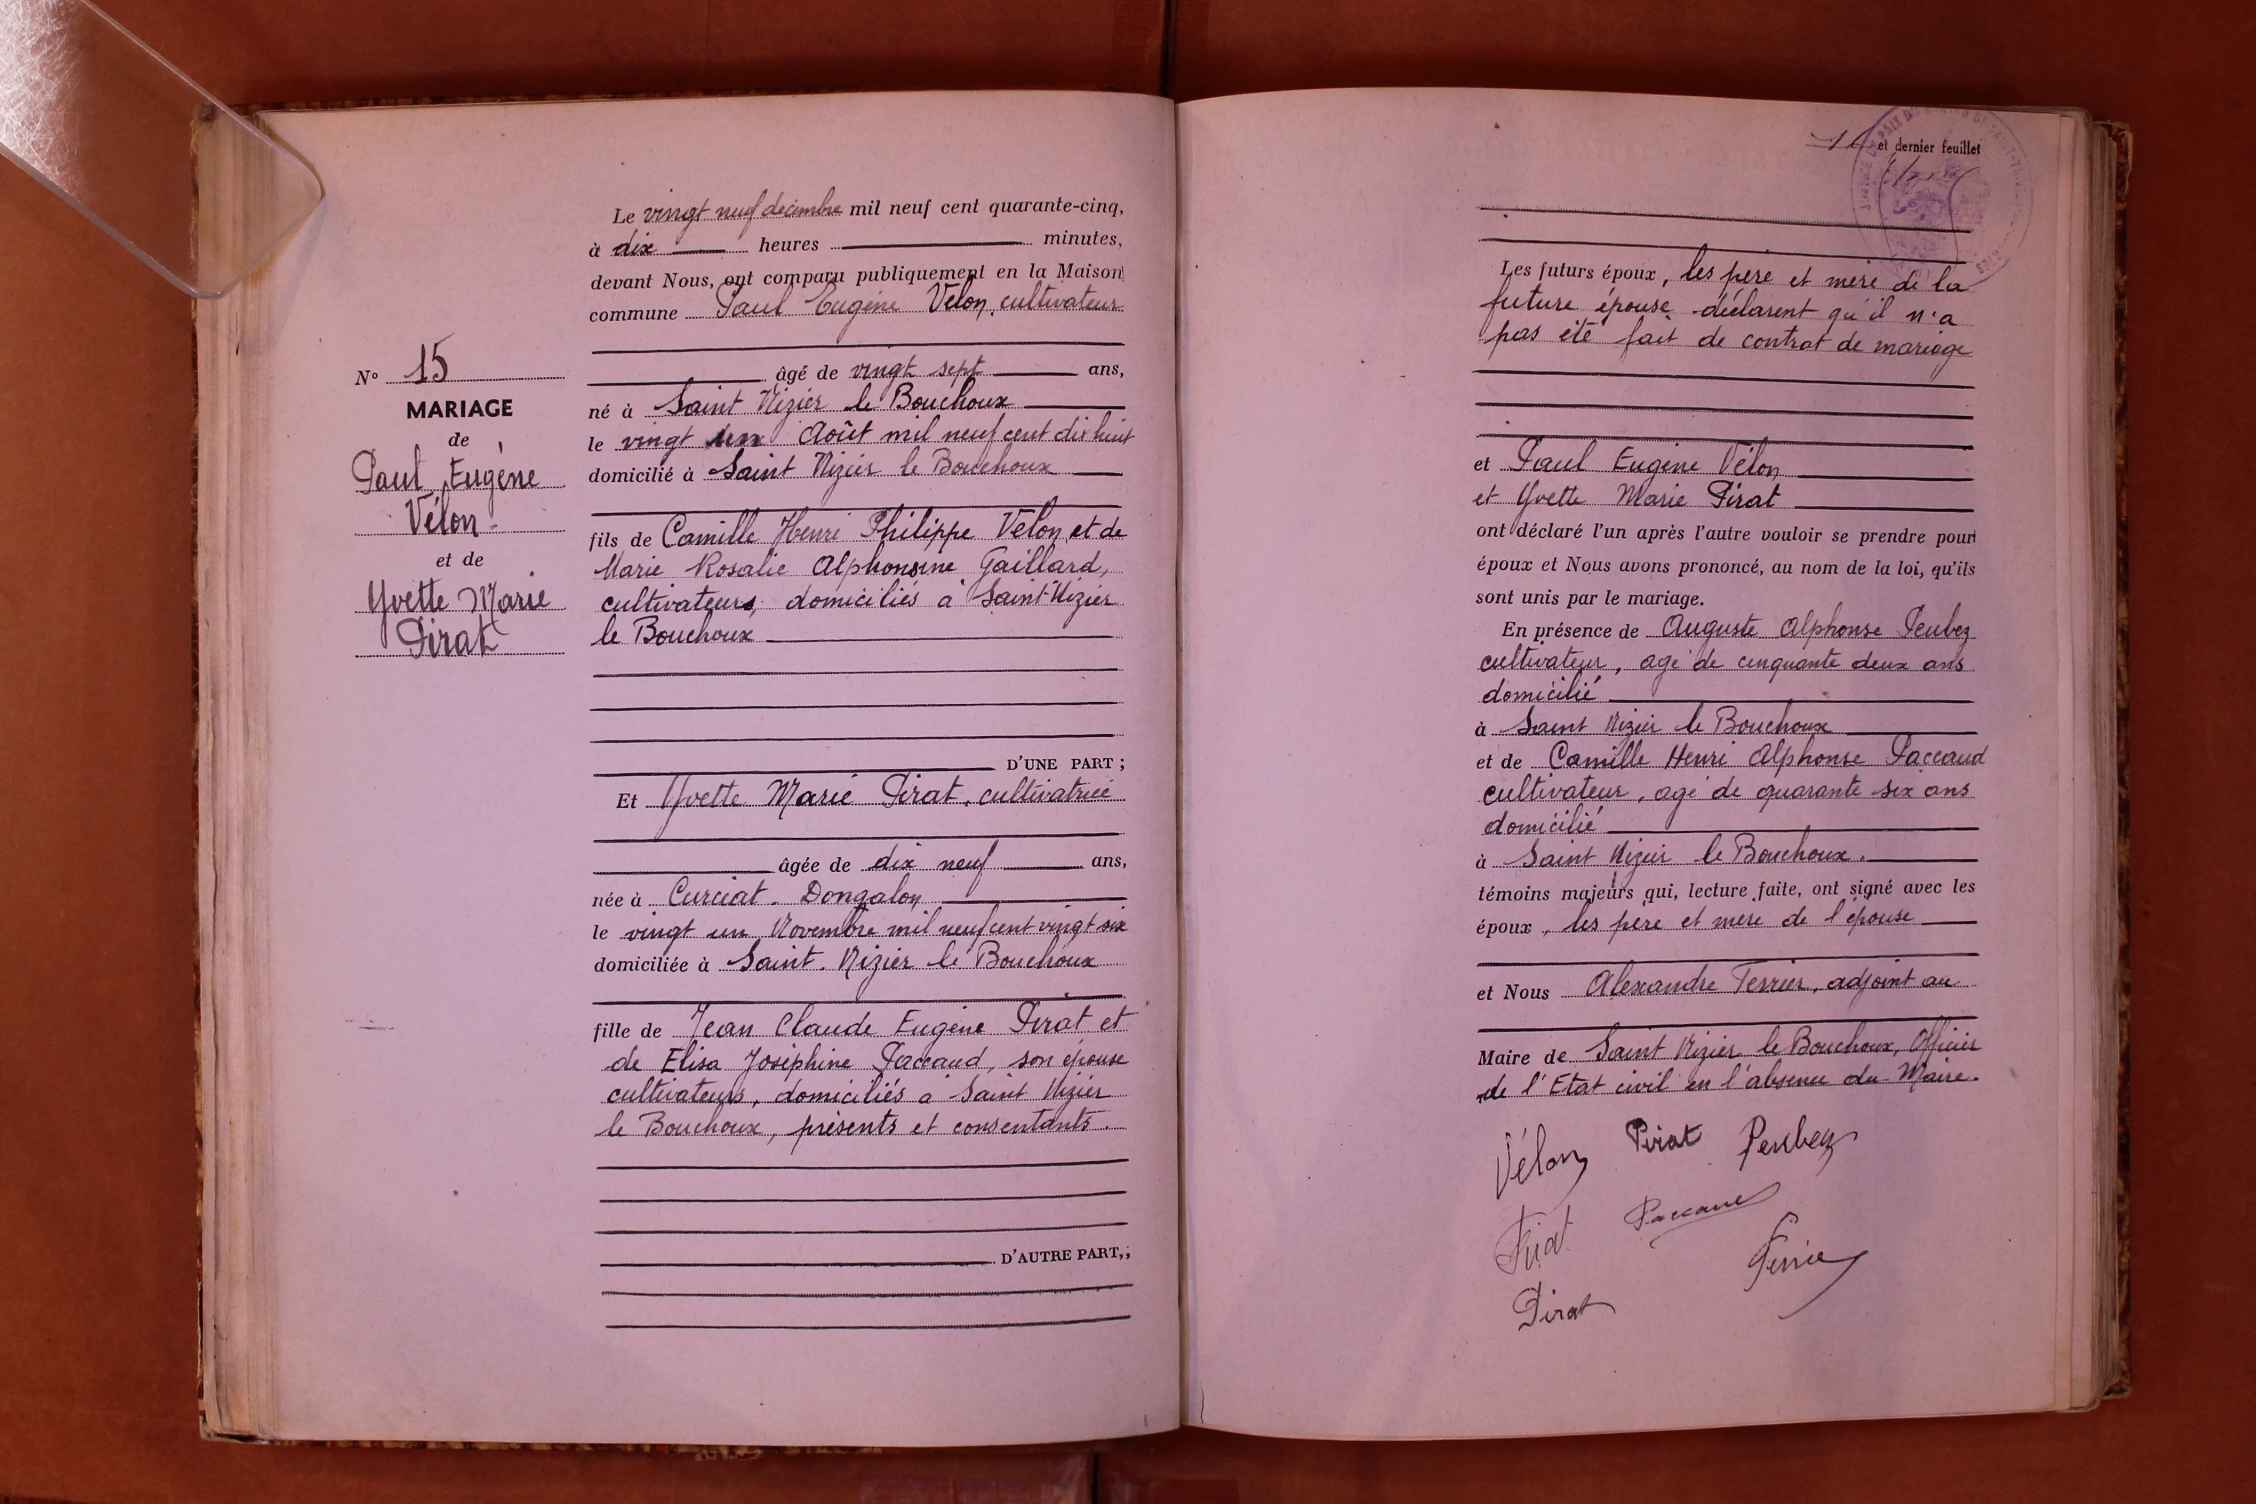 Le vingt neuf décembre mil neuf cent quarante-cinq,
à dix heures minutes,
devant Nous, ont comparu publiquement en la Maison
commune Paul Eugène Vélon, cultivateur
âgé de vingt sept ans,
né à Saint Nizier le Bouchoux
le vingt un Août mil neuf cent dix huit
domicilié à Saint Nizier le Bouchoux
fils de Camille Henri Philippe Vélon et de
Marie Rosalie Alphonsine Gaillard,
cultivateurs, domiciliés à Saint-Nizier
le Bouchoux
D'UNE PART ;
Et Yvette Marie Pirat, cultivatrice
âgée de dix neuf ans,
née à Curciat-Dongalon
le vingt un Novembre mil neuf cent vingt six
domiciliée à Saint-Nizier le Bouchoux
fille de Jean Claude Eugène Pirat et
de Elisa Joséphine Paccaud, son épouse
cultivateurs, domiciliés à Saint Nizier
le Bouchoux, présents et consentants.
D'AUTRE PART,;
N° 15
MARIAGE
de
Paul Eugène
Vélon
et de
Yvette Marie
Pirat
et dernier feuillet
Les futurs époux, les père et mère de la
future épouse déclarent qu'il n'a
pas été fait de contrat de mariage
et Paul Eugène Vélon
et Yvette Marie Pirat
ont déclaré l'un après l'autre vouloir se prendre pour
époux et Nous avons prononcé, au nom de la loi, qu'ils
sont unis par le mariage.
En présence de Auguste Alphonse Peubez
cultivateur, âgé de cinquante deux ans
domicilié
à Saint Nizier le Bouchoux
et de Camille Henri Alphonse Paccaud
cultivateur, âgé de quarante six ans
domicilié
à Saint Nizier le Bouchoux.
témoins majeurs qui, lecture faite, ont signé avec les
époux, les père et mère de l'épouse
et Nous Alexandre Terrier, adjoint au
Maire de Saint Nizier le Bouchoux, Officier
de l'Etat civil en l'absence du Maire.
Vélon Pirat Peubez
Pirat Paccaud
Terrier
Pirat